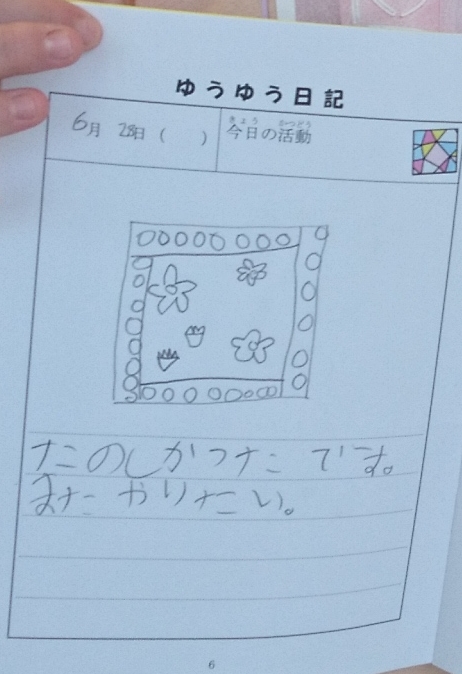 ゆうゆう日記
6月 28日 ( )
きょう かつどう
今日の活動
たのしかったです。
またやりたい。
6